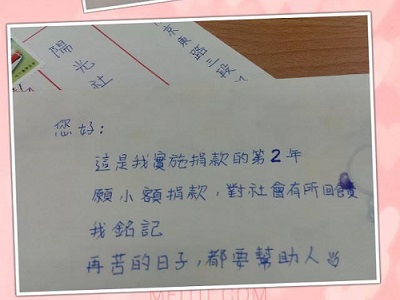 陽光社
京東路三段
您好：
這是我實施捐款的第2年
願小額捐款，對社會有所回饋
我銘記
再苦的日子，都要幫助人